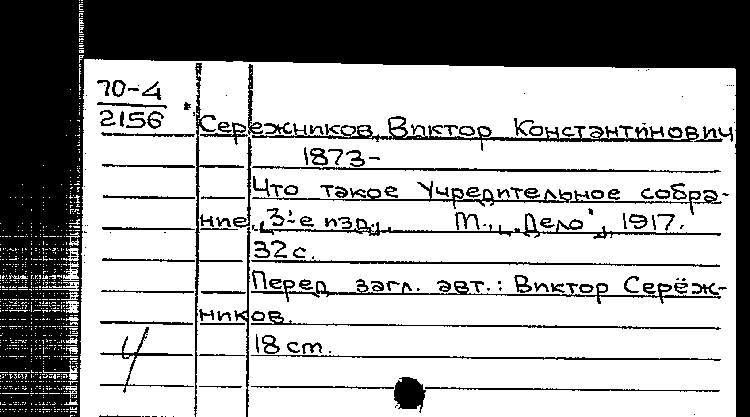 70-4
2156
Сережников, Виктор Константинович
1873-
Что такое Учредительное собра-
ние. [3-е изд.]. М., [„Дело"], 1917.
32 с.
Перед загл. авт.: Виктор Серёж-
ников.
18 cm.
4